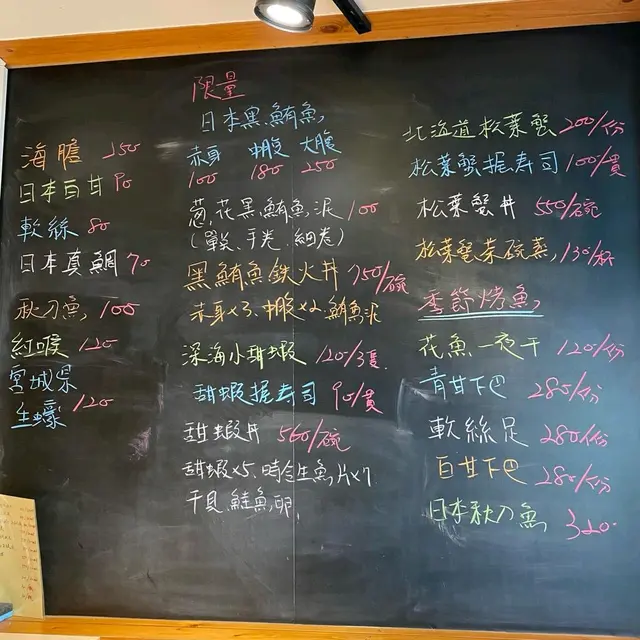 海膽 150
日本白甘 90
軟絲 80
日本真鯛 70
秋刀魚 100
紅喉 120
宮城県
生蠔 120
限量
日本黑鮪魚
赤身 中腹 大腹
100 180 250
蔥花黑鮪魚泥 100
(軍艦、手卷、細卷)
黑鮪魚鉄火丼 750/碗
赤身x3、中腹x2、鮪魚泥
深海小甜蝦 120/3隻
甜蝦握寿司 90/貫
甜蝦丼 560/碗
甜蝦x5、時令生魚片x7
干貝、鮭魚卵
北海道松葉蟹 200/份
松葉蟹握寿司 100/貫
松葉蟹丼 550/碗
松葉蟹茶碗蒸 130/杯
季節烤魚
花魚一夜干 120/份
青甘下巴 280/份
軟絲足 280/份
白甘下巴 280/份
日本秋刀魚 320